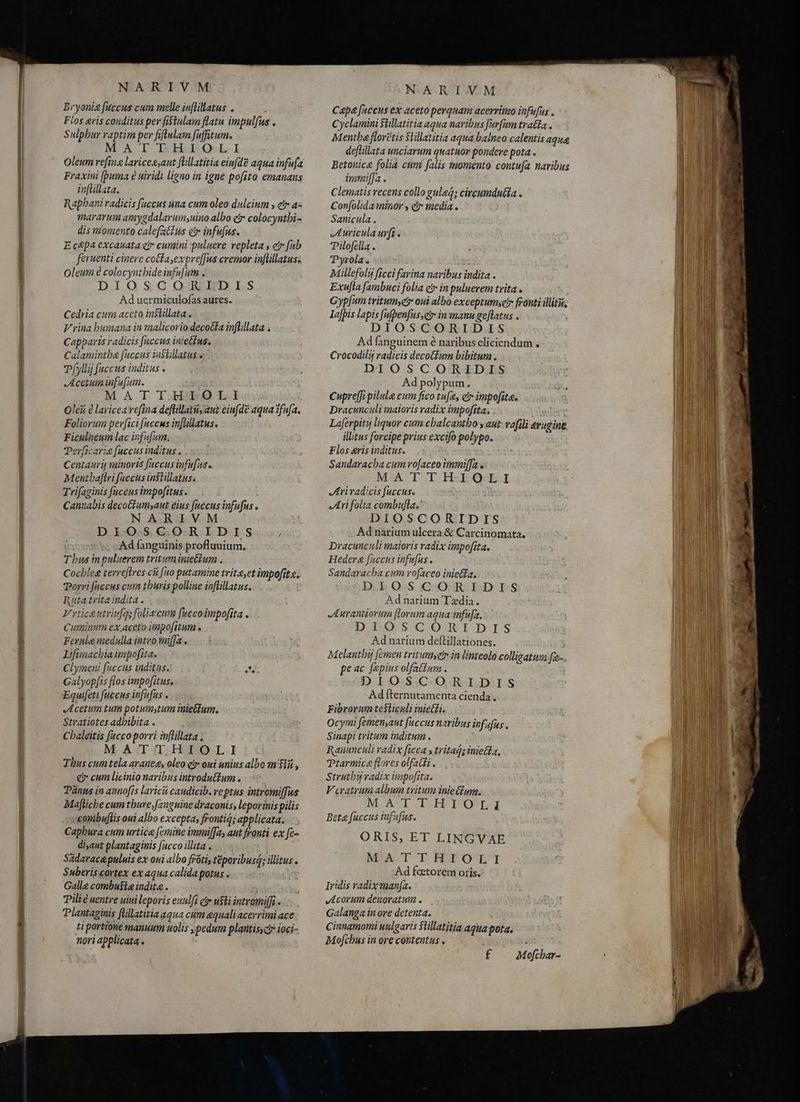 NARIVM
Bryoniæ ſuccus cum melle inſtillatus .
Flos æris conditus per fiſtulam flatu impulſus .
Sulphur raptim per fiſtulam ſuffitum .
MATTHIOLI
Oleum reſinæ lariceæ, aut ſtillatitia eiuſdē aqua infuſa
Fraxini ſpuma è uiridi ligno in igne poſito emanans
inſtillata.
Raphani radicis ſuccus unà cum oleo dulcium , & a-
mararum amygdalarum, uino albo & colocynthi-
dis momento calefactus & infuſus.
E cæpa excauata & cumini puluere repleta , & ſub
feruenti cinere cocta, expreſſus cremor inſtillatus.
Oleum è colocynthide infuſum .
DIOSCORIDIS
Ad uermiculoſas aures.
Cedria cum aceto inſtillata .
Vrina humana in malicorio decocta inſtillata .
Capparis radicis ſuccus iniectus.
Calaminthæ ſuccus inſtillatus .
Pſyllij ſuccus inditus .
Acetum infuſum.
MATTHIOLI
Oleū è laricea reſina deſtillatū, aut eiuſdē aqua īfuſa.
Foliorum perſici ſuccus inſtillatus.
Ficulneum lac infuſum.
Perſicariæ ſuccus inditus .
Centaurij minoris ſuccus infuſus .
Menthaſtri ſuccus inſtillatus.
Trifaginis ſuccus impoſitus .
Cannabis decoctum, aut eius ſuccus infuſus .
NARIVM
DIOSCORIDIS
Ad ſanguinis profluuium.
Thus in puluerem tritum iniectum .
Cochleæ terreſtres cū ſuo putamine tritæ, et impoſitæ.
Porri ſuccus cum thuris polline inſtillatus.
Ruta trita indita .
Vrticæ utriuſq; folia cum ſucco impoſita .
Cuminum ex aceto impoſitum .
Ferulæ medulla intro miſſa .
Liſimachia impoſita.
Clymeni ſuccus inditus.
Galyopſis flos impoſitus.
Equiſeti ſuccus infuſus .
Acetum tum potum, tum iniectum.
Stratiotes adhibita .
Chalcitis ſucco porri inſtillata .
MATTHIOLI
Thus cum tela araneæ, oleo & oui unius albo mistū ,
& cum licinio naribus introductum .
Panus in annoſis laricū caudicib. reptus intromiſſus
Maſtiche cum thure, ſanguine draconis, leporinis pilis
combuſtis oui albo excepta, frontiq; applicata.
Caphura cum urticæ ſemine immiſſa, aut fronti ex ſe-
di, aut plantaginis ſucco illita .
Sādaracæ puluis ex oui albo frōti, tēporibusq; illitus .
Suberis cortex ex aqua calida potus .
Gallæ combustæ inditæ .
Pili è uentre uiui leporis euulſi & usti intromiſſi .
Plantaginis ſtillatitia aqua cum æquali acerrimi ace
ti portione manuum uolis , pedum plantis, & ioci-
nori applicata .
NARIVM
Cæpæ ſuccus ex aceto perquam acerrimo infuſus .
Cyclamini stillatitia aqua naribus ſurſum tracta .
Menthæ florētis stillatitia aqua balneo calentis aquæ
deſtillata unciarum quatuor pondere pota .
Betonicæ folia cum ſalis momento contuſa naribus
immiſſa .
Clematis recens collo gulæq; circumducta .
Conſolida minor , & media .
Sanicula .
Auricula urſi .
Piloſella .
Pyrola .
Millefolij ſicci farina naribus indita .
Exuſta ſambuci folia & in puluerem trita .
Gypſum tritum, & oui albo exceptum, & fronti illitū,
Iaſpis lapis ſuſpenſus, & in manu geſtatus .
DIOSCORIDIS
Ad ſanguinem è naribus eliciendum .
Crocodilij radicis decoctum bibitum .
DIOSCORIDIS
Ad polypum .
Cupreſſi pilulæ cum fico tuſæ, & impoſitæ.
Dracunculi maioris radix impoſita.
Laſerpitij liquor cum chalcantho , aut raſili ærugine
illitus forcipe prius exciſo polypo.
Flos æris inditus.
Sandaracha cum roſaceo immiſſa .
MATTHIOLI
Ari radicis ſuccus.
Ari folia combuſta.
DIOSCORIDIS
Ad narium ulcera & Carcinomata.
Dracunculi maioris radix impoſita.
Hederæ ſuccus infuſus .
Sandaracha cum roſaceo iniecta.
DIOSCORIDIS
Ad narium Tædia.
Aurantiorum florum aqua infuſa.
DIOSCORIDIS
Ad narium deſtillationes.
Melanthij ſemen tritum, & in linteolo colligatum ſæ-
pe ac ſæpius olfactum .
DIOSCORIDIS
Ad ſternutamenta cienda .
Fibrorum testiculi iniecti.
Ocymi ſemen, aut ſuccus naribus infuſus .
Sinapi tritum inditum .
Ranunculi radix ſicca , tritaq; iniecta.
Ptarmicæ flores olfacti .
Struthij radix impoſita.
Veratrum album tritum iniectum.
MATTHIOLI
Betæ ſuccus infuſus.
ORIS, ET LINGVAE
MATTHIOLI
Ad fœtorem oris.
Iridis radix manſa.
Acorum deuoratum .
Galanga in ore detenta.
Cinnamomi uulgaris stillatitia aqua pota.
Moſchus in ore contentus .
f Moſchar-